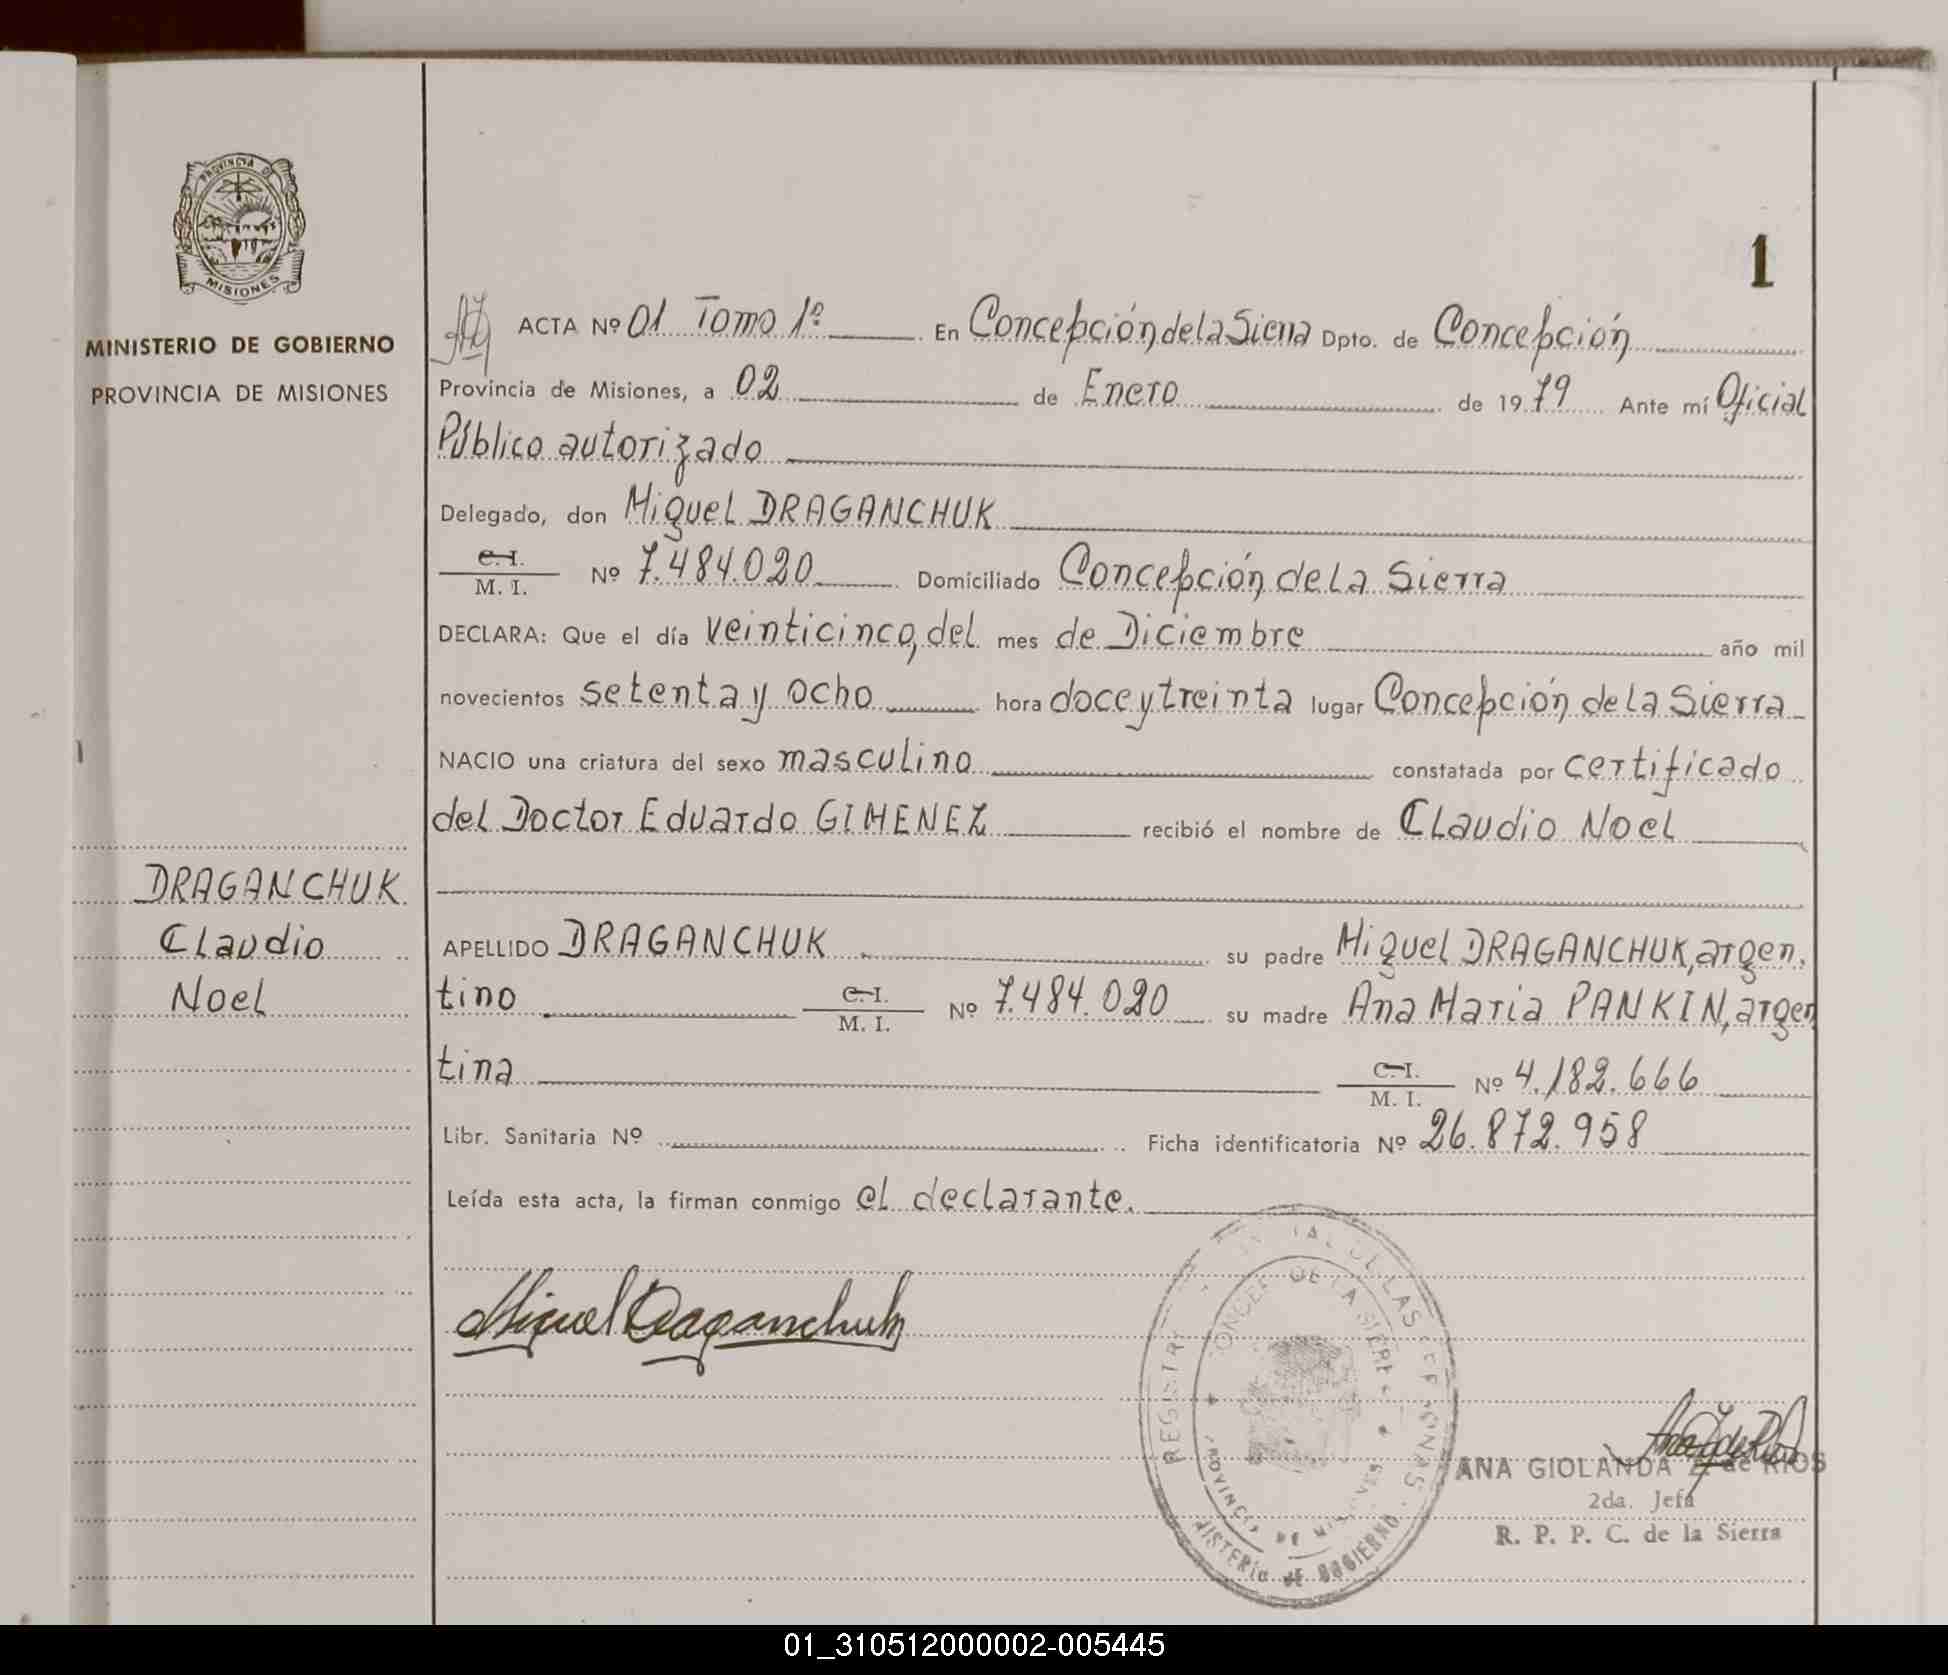 PROVINCIA DE
MISIONES
MINISTERIO DE GOBIERNO
PROVINCIA DE MISIONES
DRAGANCHUK
Claudio
Noel
1
ACTA Nº 01 Tomo 1º En Concepción de la Sierra Dpto. de Concepción
Provincia de Misiones, a 02 de Enero de 1979 Ante mí Oficial
Público autorizado
Delegado, don Miguel DRAGANCHUK
C. I.
M. I. Nº 7.484.020 Domiciliado Concepción de la Sierra
DECLARA: Que el día veinticinco, del mes de Diciembre año mil
novecientos setenta y ocho hora doce y treinta lugar Concepción de la Sierra
NACIO una criatura del sexo masculino constatada por certificado
del Doctor Eduardo GIMENEZ recibió el nombre de Claudio Noel
APELLIDO DRAGANCHUK su padre Miguel DRAGANCHUK, argen.
tino C. I. M. I. Nº 7.484.020 su madre Ana Maria PANKIN, argen
tina C. I. M. I. Nº 4.182.666
Libr. Sanitaria Nº Ficha identificatoria Nº 26.872.958
Leída esta acta, la firman conmigo el declarante.
Miguel Draganchuk
DE LAS
DE LA SIERR
PROVINCIA DE MISIONES
DE GOBIERNO
ANA GIOLANDA Z. de RIOS
2da. Jefa
R. P. P. C. de la Sierra
01_310512000002-005445